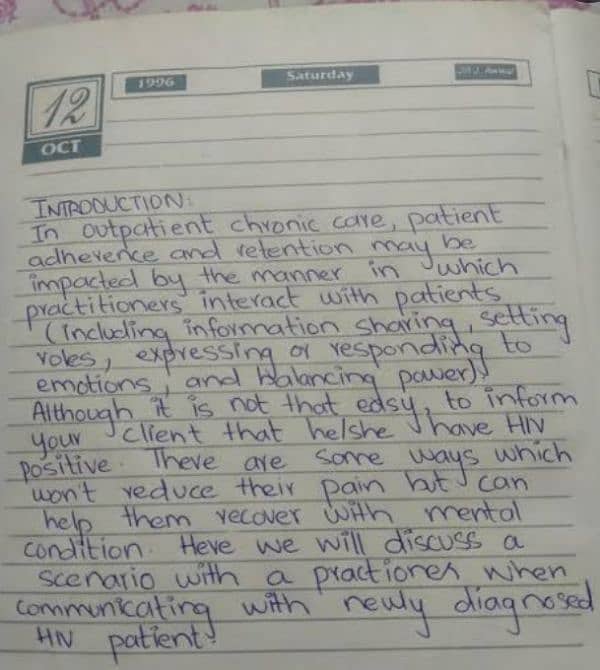 12
OCT
1996
Saturday
INTRODUCTION:
In outpatient chronic care, patient
adherence and retention may be
impacted by the manner in which
practitioners interact with patients
(including information sharing, setting
roles, expressing or responding to
emotions, and balancing power)
Although it is not that easy, to inform
your client that he/she have HIV
positive. There are some ways which
won't reduce their pain but can
help them recover with mental
condition. Here we will discuss a
scenario with a practioner when
communicating with newly diagnosed
HIV patient.